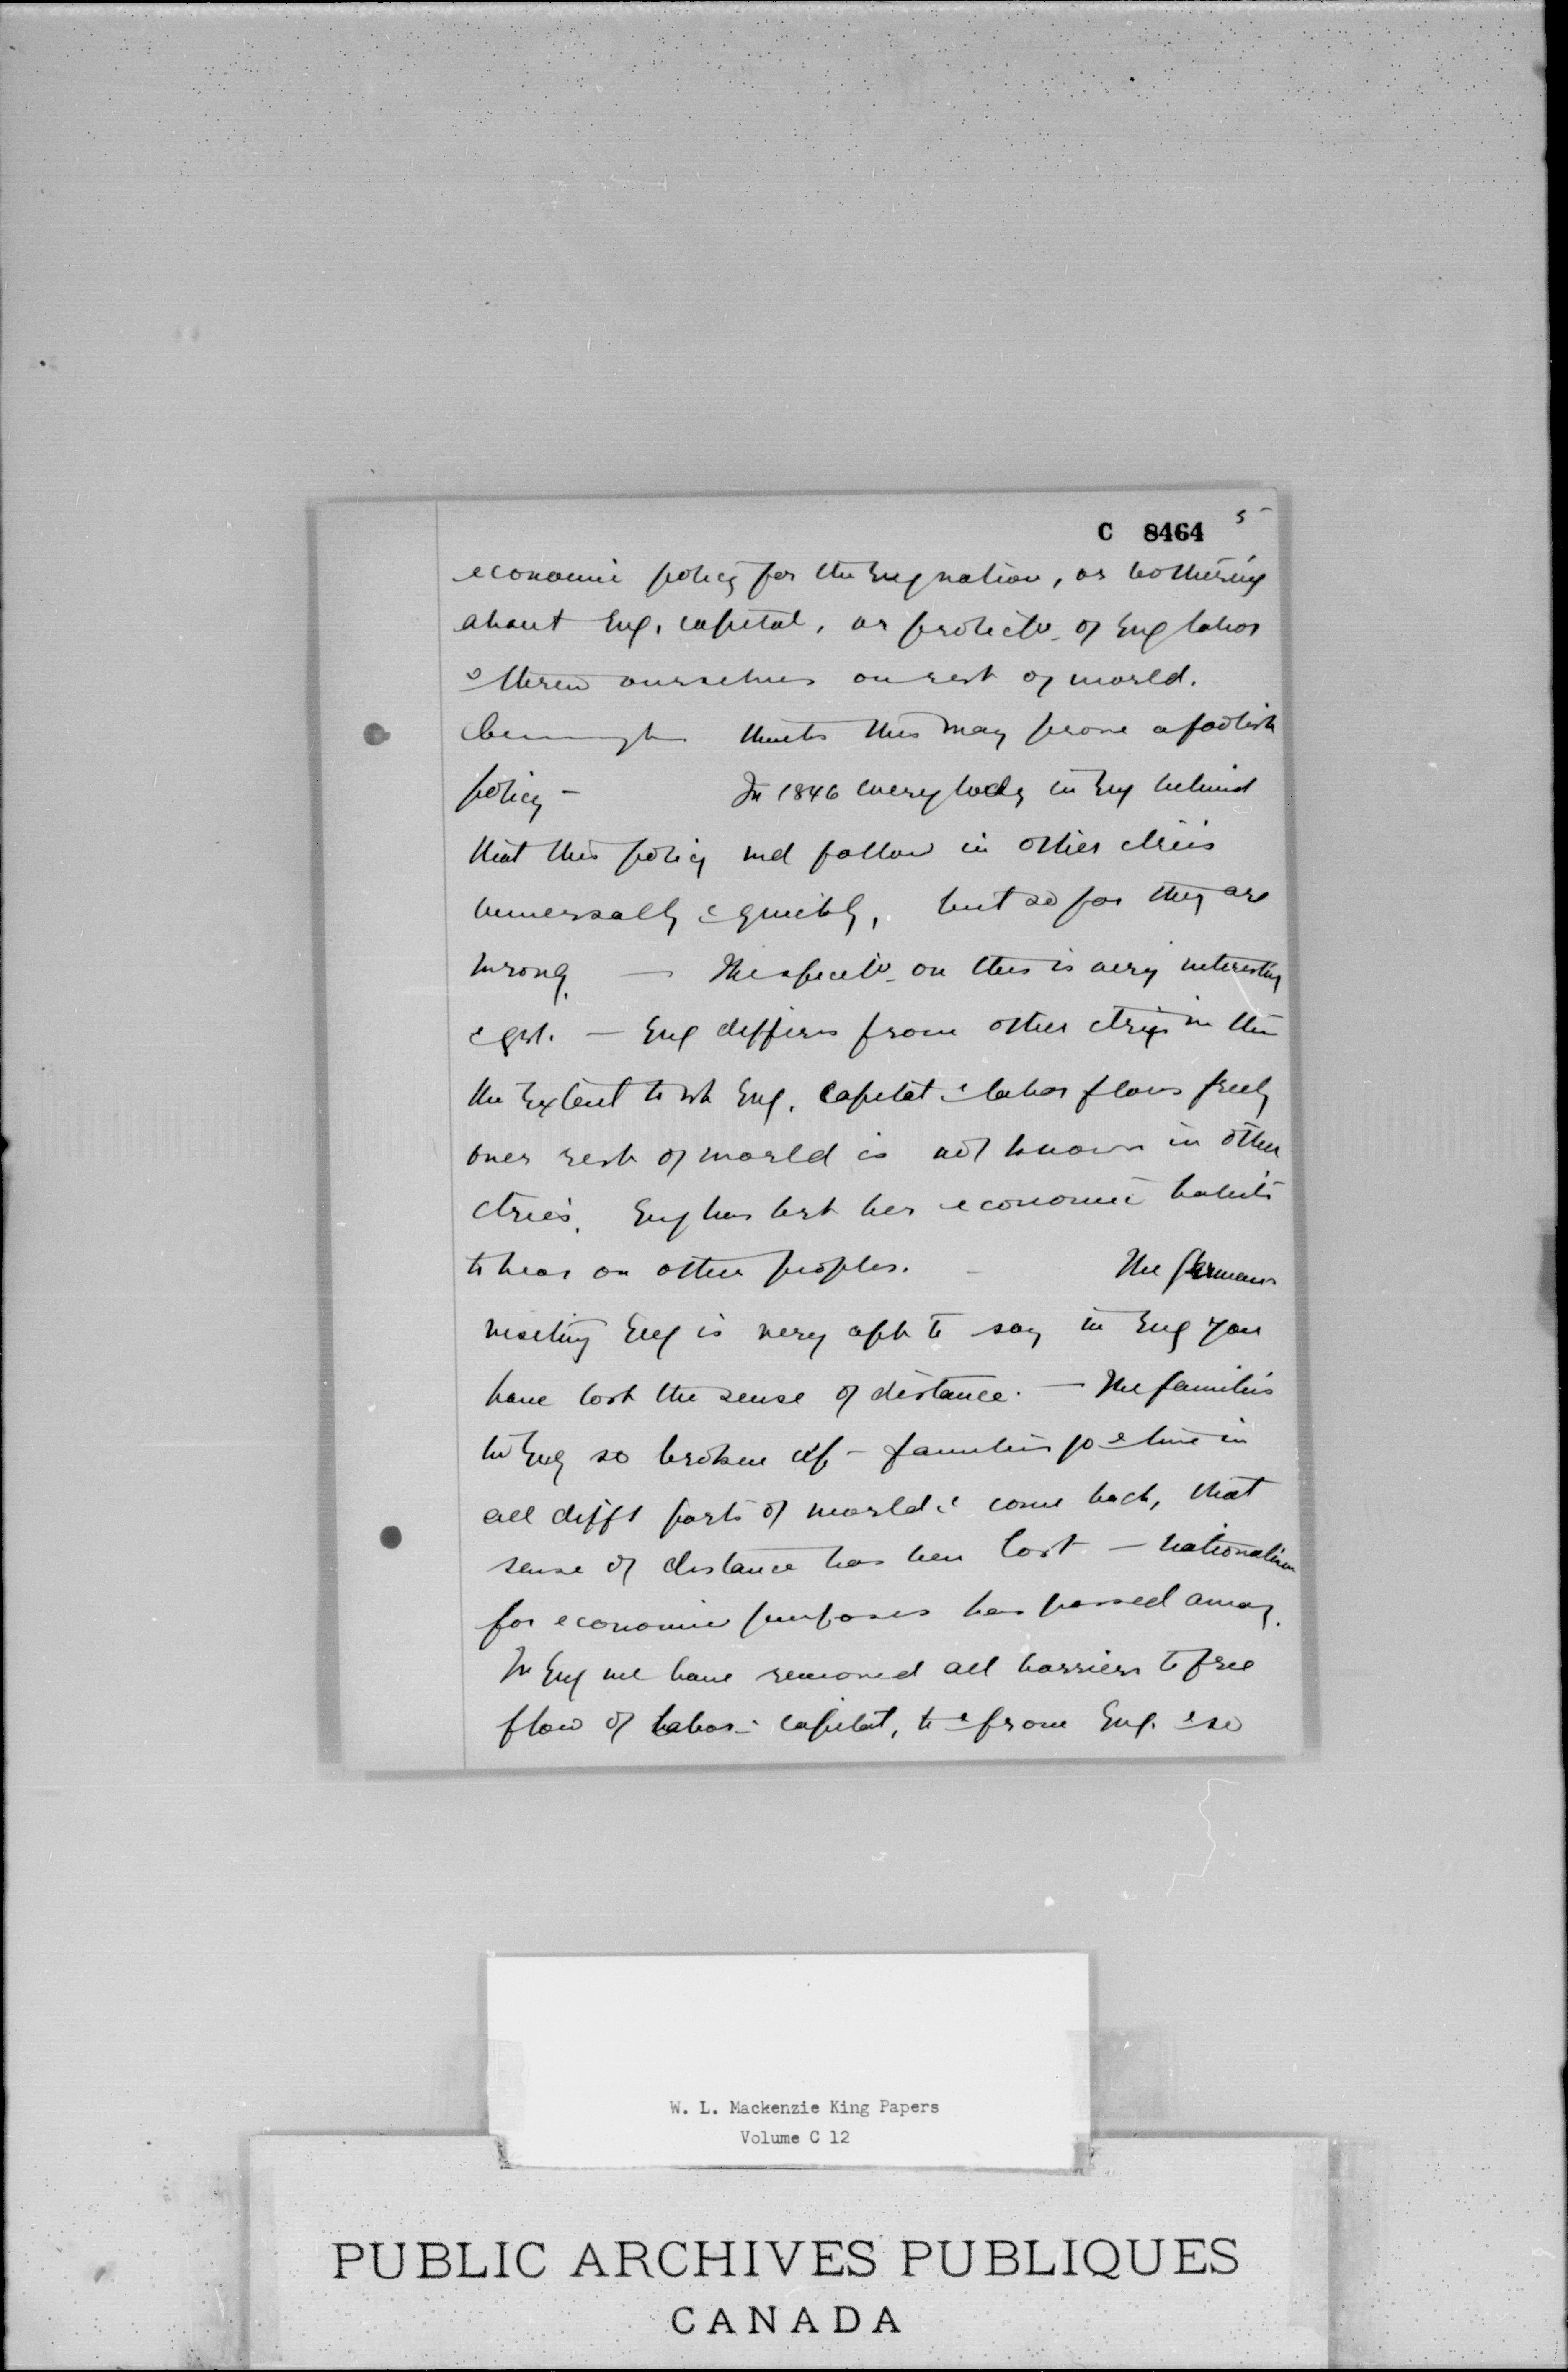 C 8464 5
economic policy for the Eng nation, or bothering
about Eng. capital, or protectn of Eng labor
& threw ourselves on rest of world.
Cunningham thinks this may prove a foolish
policy - In 1846 everybody in Eng believed
that this policy wd follow in other ctries
universally & quickly, but so far they are
wrong. — The on this is very interesting
& grt. — Eng differs from other ctries in this
the extent to wh Eng. capital & labor flows freely
over rest of world is not known in other
ctries. Eng has lost her economic habits
to bear on other peoples. - The Germans
visiting Eng is very apt to say in Eng you
have lost the sense of distance. — The families
in Eng so broken up - families go & live in
all difft parts of world & come back, that
sense of distance has been lost — nationalism
for economic purposes has passed away.
In Eng we have removed all barriers to free
flow of labor & capital, to & from Eng. & so
W. L. Mackenzie King Papers
Volume C 12
PUBLIC ARCHIVES PUBLIQUES
CANADA